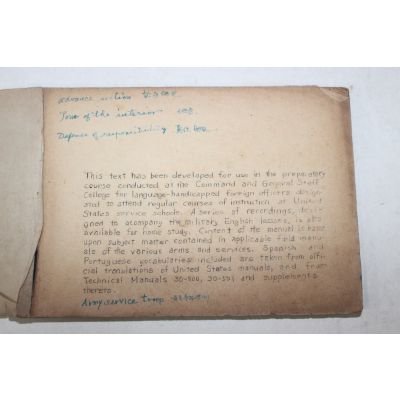 advance notice
Tour of the interior
Defence of responsibility
This text has been developed for use in the preparatory
course conducted at the Command and General Staff
College for language-handicapped foreign officers desig-
nated to attend regular courses of instruction at United
States service schools. A series of recordings, desi-
gned to acompany the military English lessons, is also
available for home study. Content of the manual is based
upon subject matter contained in applicable field manu-
als of the various arms and services. Spanish and
Portuguese vocabularies included are taken from offi-
cial translations of United States manuals, and from
Technical Manuals 30-500, 30-501 and supplements
thereto.
Army service troop